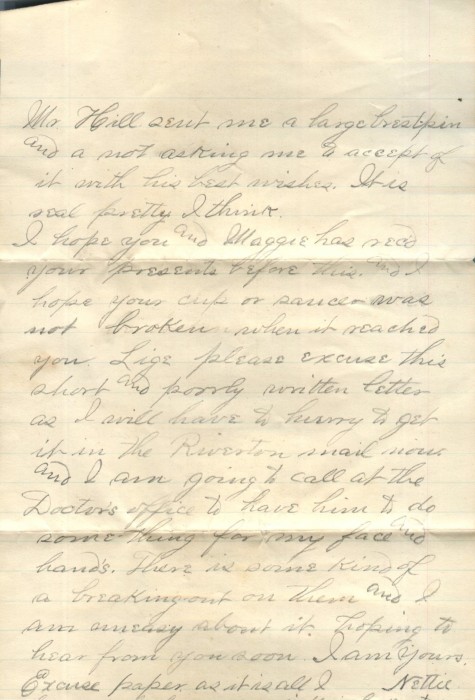 Mr Hill sent me a large brestpin
and a not asking me to accept of
it with his best wishes. It is
real pretty I think.
I hope you and Maggie has rec'd
your presents before this. and I
hope your cup or saucer was
not broken when it reached
you. Lige please excuse this
short and poorly written letter
as I will have to hurry to get
it in the Riverton mail now
and I am going to call at the
Doctor's office to have him to do
some thing for my face and
hands. There is some kind of
a breaking out on them and I
am uneasy about it. hoping to
hear from you soon I am Yours.
Excuse paper as it is all I Nettie